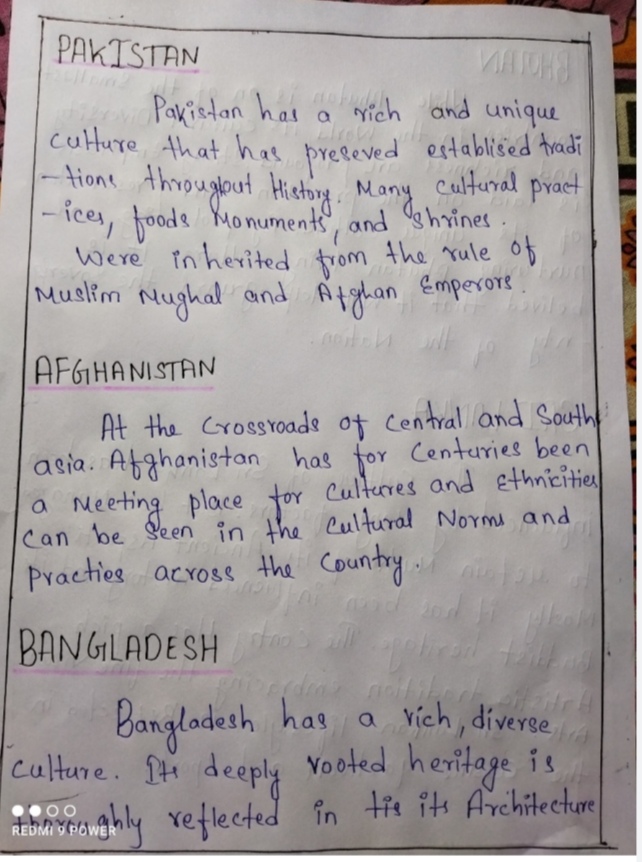 PAKISTAN
Pakistan has a rich and unique
culture that has preseved establised tradi
-tions throughout History. Many Cultural pract
-ices, foods Monuments, and Shrines.
Were inherited from the rule of
Muslim Mughal and Afghan Emperors.
AFGHANISTAN
At the Crossroads of Central and South
asia. Afghanistan has for Centuries been
a Meeting place for Cultures and Ethnicities
Can be Seen in the Cultural Norms and
Practies across the Country.
BANGLADESH
Bangladesh has a rich, diverse
Culture. Its deeply rooted heritage is
thoroughly reflected in tis its Architecture
REDMI 9 POWER